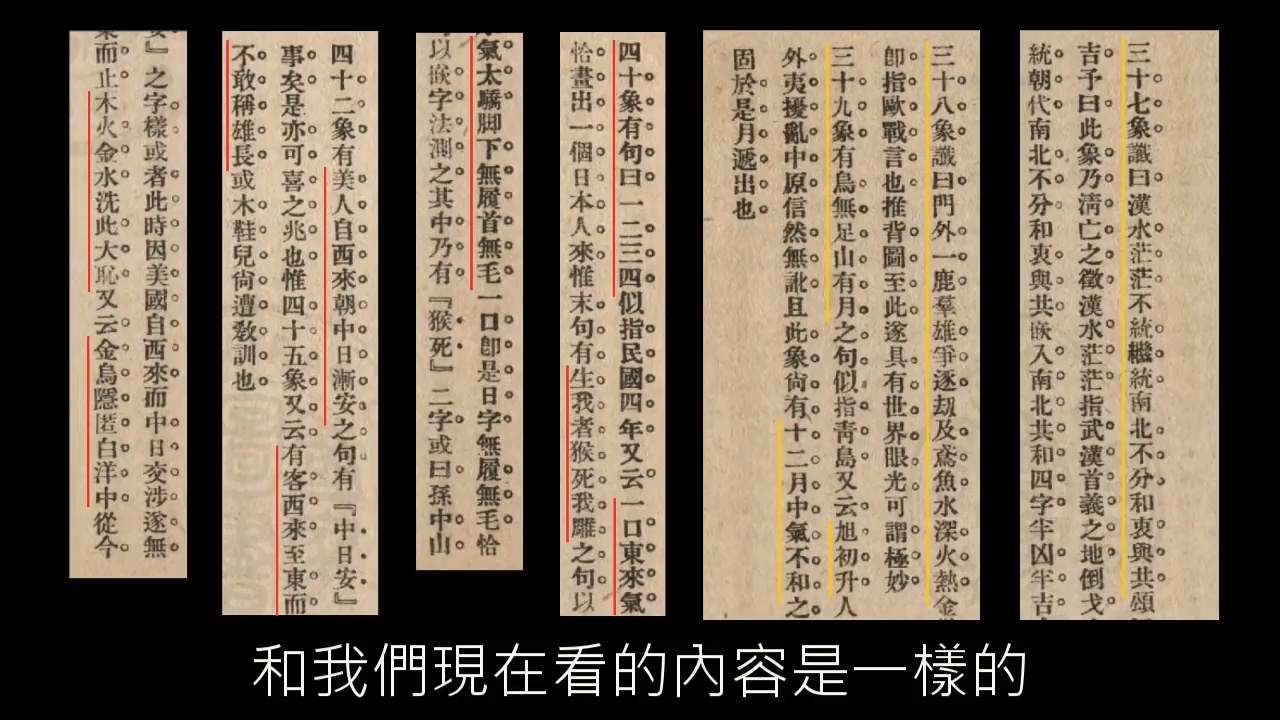 三十七象讖曰漢水茫茫不統繼統南北不分和衷與共頌
吉予曰此象乃淸亡之徵漢水茫茫指武漢首義之地倒戈
統朝代南北不分和衷與共嵌入南北共和四字半凶半吉
三十八象讖曰門外一鹿羣雄爭逐刼及鳶魚水深火熱金
卽指歐戰言也推背圖至此遂具有世界眼光可謂極妙
三十九象有鳥無足山有月之句似指靑島又云旭初升人
外夷擾亂中原信然無訛且此象尙有十二月中氣不和之
固於是月遞出也
四十象有句曰一二三四似指民國四年又云一口東來氣
恰畫出一個日本人來惟末句有生我者猴死我雕之句以
氣太驕脚下無履首無毛一口卽是日字無履無毛恰
以嵌字法測之其中乃有『猴死』二字或曰孫中山
四十二象有美人自西來朝中日漸安之句有『中日安』
事矣是亦可喜之兆也惟四十五象又云有客西來至東而
不敢稱雄長或木鞋兒尙遭敎訓也
』之字樣或者此時因美國自西來而中日交涉遂無
而止木火金水洗此大恥又云金烏隱匿白洋中從今
和我們現在看的內容是一樣的